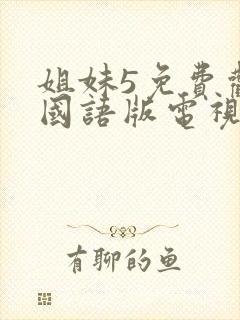 姐妹5免費
國語版電視
有聊的鱼